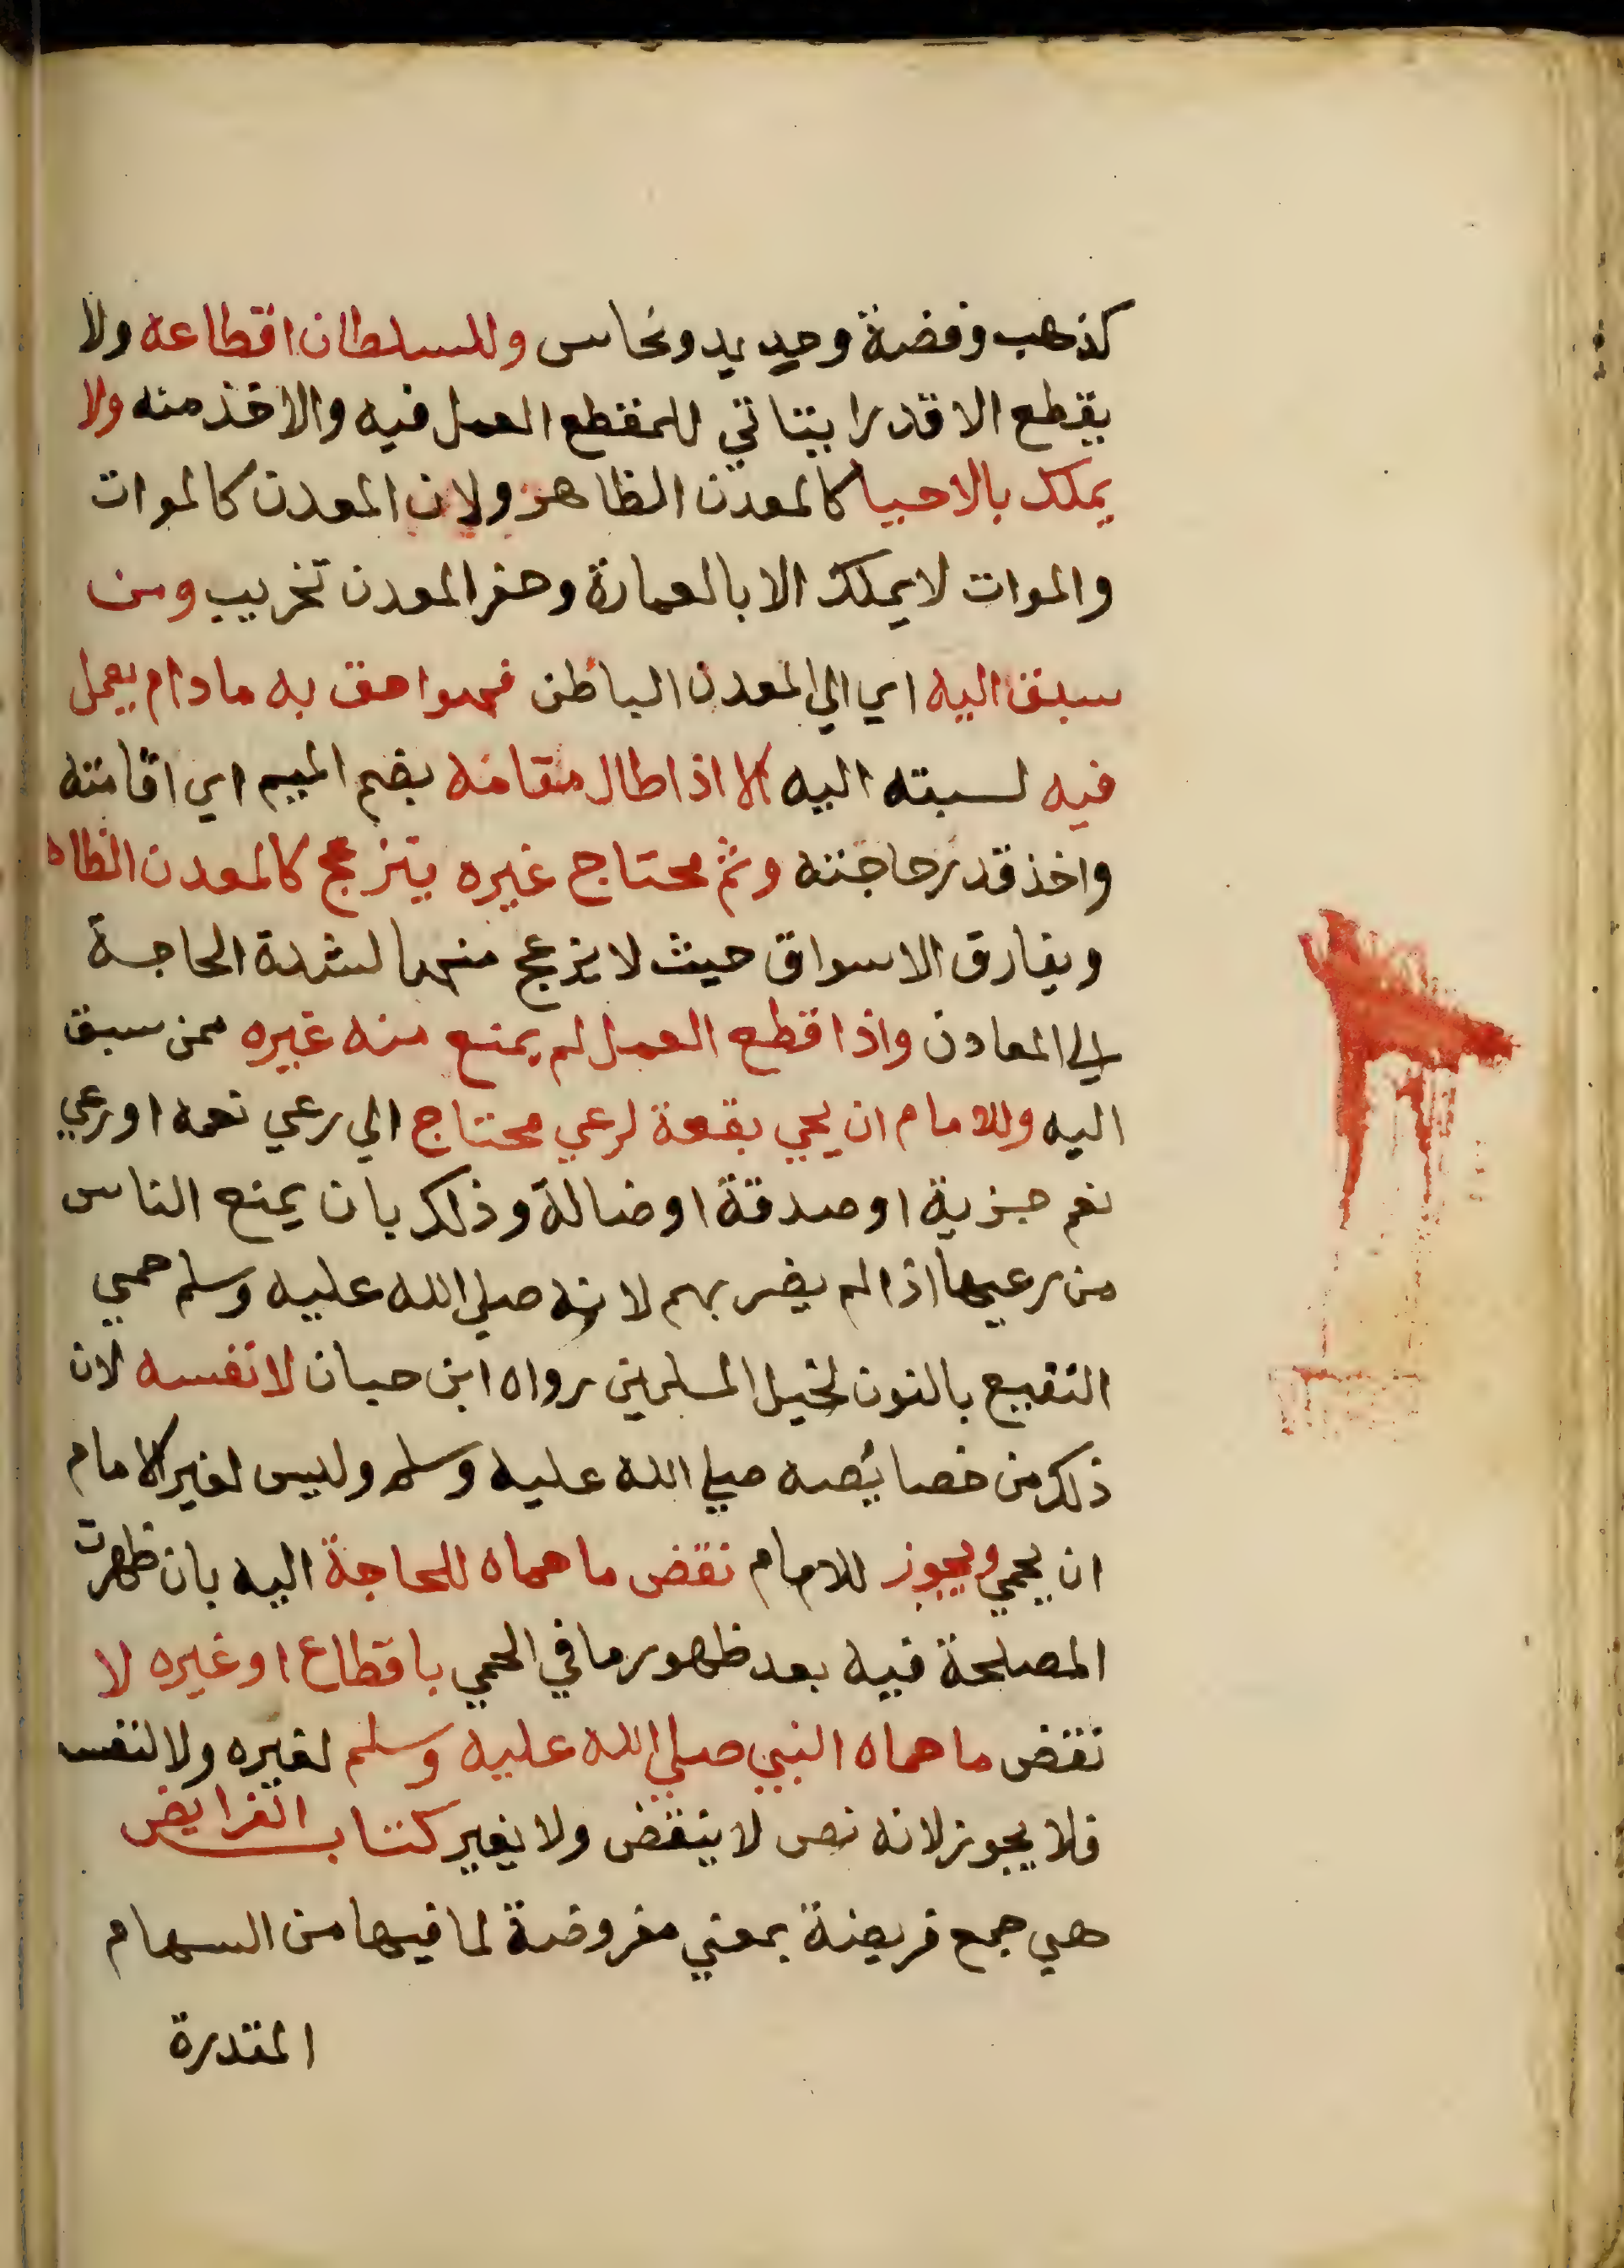 كذهب وفضة وحديد ونحاس وللسلطان اقطاعه ولا
يقطع الا قدرا يتاتي للمقطع العمل فيه والاخذ منه ولا
يملك بالاحيا كالمعدن الظاهر ولان المعدن كالموات
والموات لا يملك الا بالعمارة وحفر المعدن تخريب ومن
سبق اليه اي الي المعدن الباطن فهو احق به مادام يعمل
فيه لسبقه اليه الا اذا طال مقامه بضم الميم اي اقامته
واخذ قدر حاجته وثم محتاج غيره يزعج كالمعدن الظاه
ويفارق الاسواق حيث لا يزعج منها لشدة الحاجة
الي المعادن واذا قطع العمل لم يمنع منه غيره ممن سبق
اليه وللامام ان يحمي بقعة لرعي محتاج الي رعي نعمه او رعي
نعم جزية او صدقة او ضالة وذلك بان يمنع الناس
من رعيها اذا لم يضر بهم لانه صلي الله عليه وسلم حمي
النقيع بالنون لخيل المسلمين رواه ابن حبان لا نفسه لان
ذلك من خصائصه صلي الله عليه وسلم وليس لغير الامام
ان يحمي ويجوز للامام نقض ما حماه للحاجة اليه بان ظهرت
المصلحة فيه بعد ظهورها في الحمي باقطاع او غيره لا
نقض ما حماه النبي صلي الله عليه وسلم لغيره ولا لنفسه
فلا يجوز لانه نص لا ينقض ولا يغير كتاب الفرايض
هي جمع فريضة بمعني مفروضة لما فيها من السهام
المقدرة